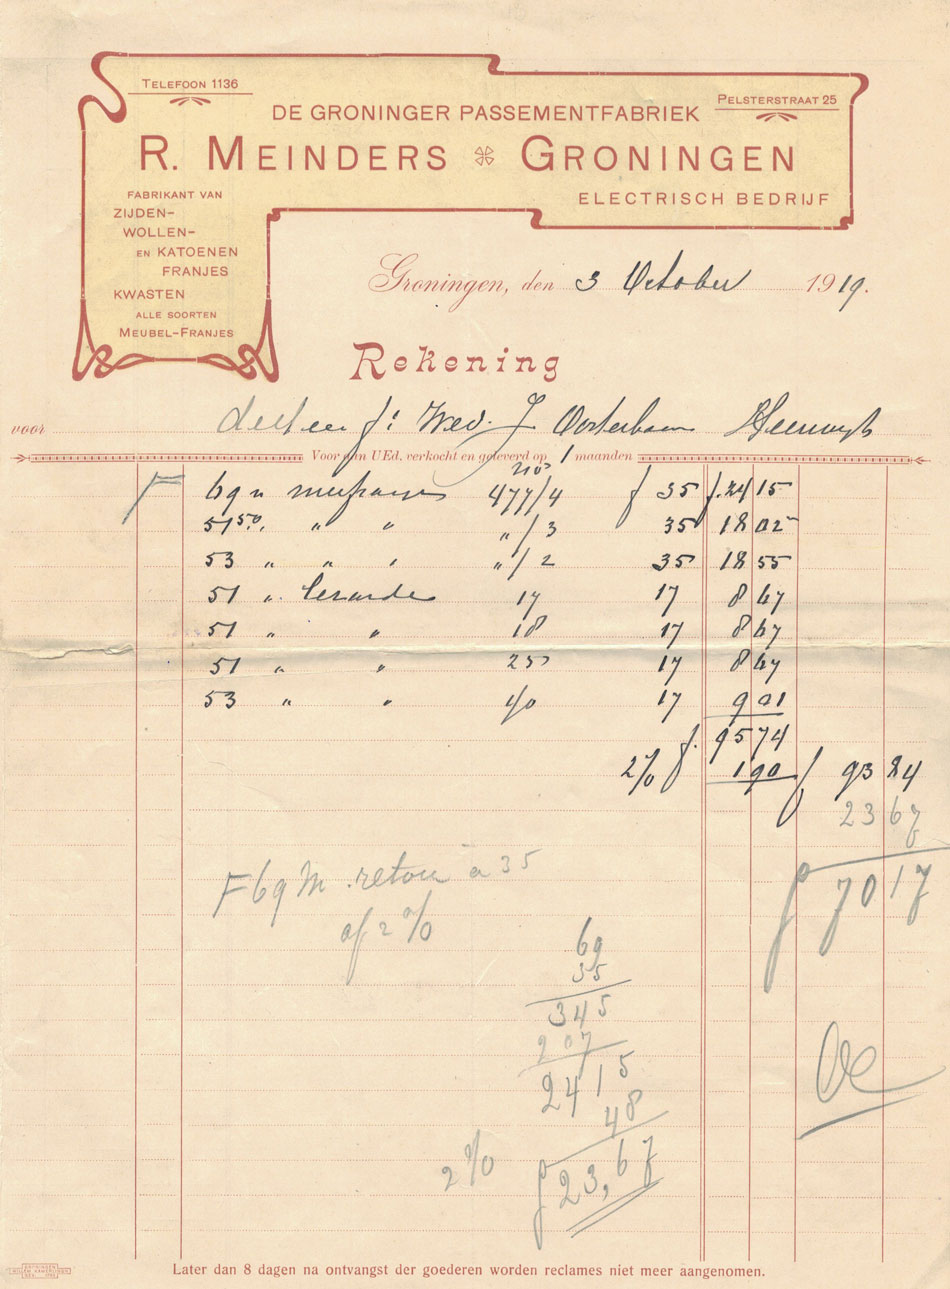 TELEFOON 1136
PELSTERSTRAAT 25
DE GRONINGER PASSEMENTFABRIEK
R. MEINDERS GRONINGEN
ELECTRISCH BEDRIJF
FABRIKANT VAN
ZIJDEN-
WOLLEN-
EN KATOENEN
FRANJES
KWASTEN
ALLE SOORTEN
MEUBEL-FRANJES
Groningen, den 3 October 1919.
Rekening
voor Wed. J Oosterbaan
Voor aan UEd. verkocht en geleverd op 1 maanden
nos
F 69 m 477/4 f 35 f. 24 15
51 50 " " " "/3 35 18 02
53 " " " "/2 35 18 55
51 " 17 17 8 67
51 " " 18 17 8 67
51 " " 25 17 8 67
53 " " 40 17 9 01
f. 95 74
2% f. 1 90 f 93 84
23 67
f 70 17
F 69 M. retour a 35
af 2%
69
35
345
207
2415
48
2% f 23,67
Later dan 8 dagen na ontvangst der goederen worden reclames niet meer aangenomen.